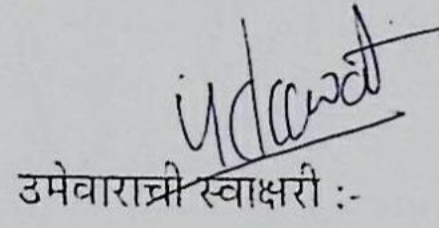 उमेवाराची स्वाक्षरी :-